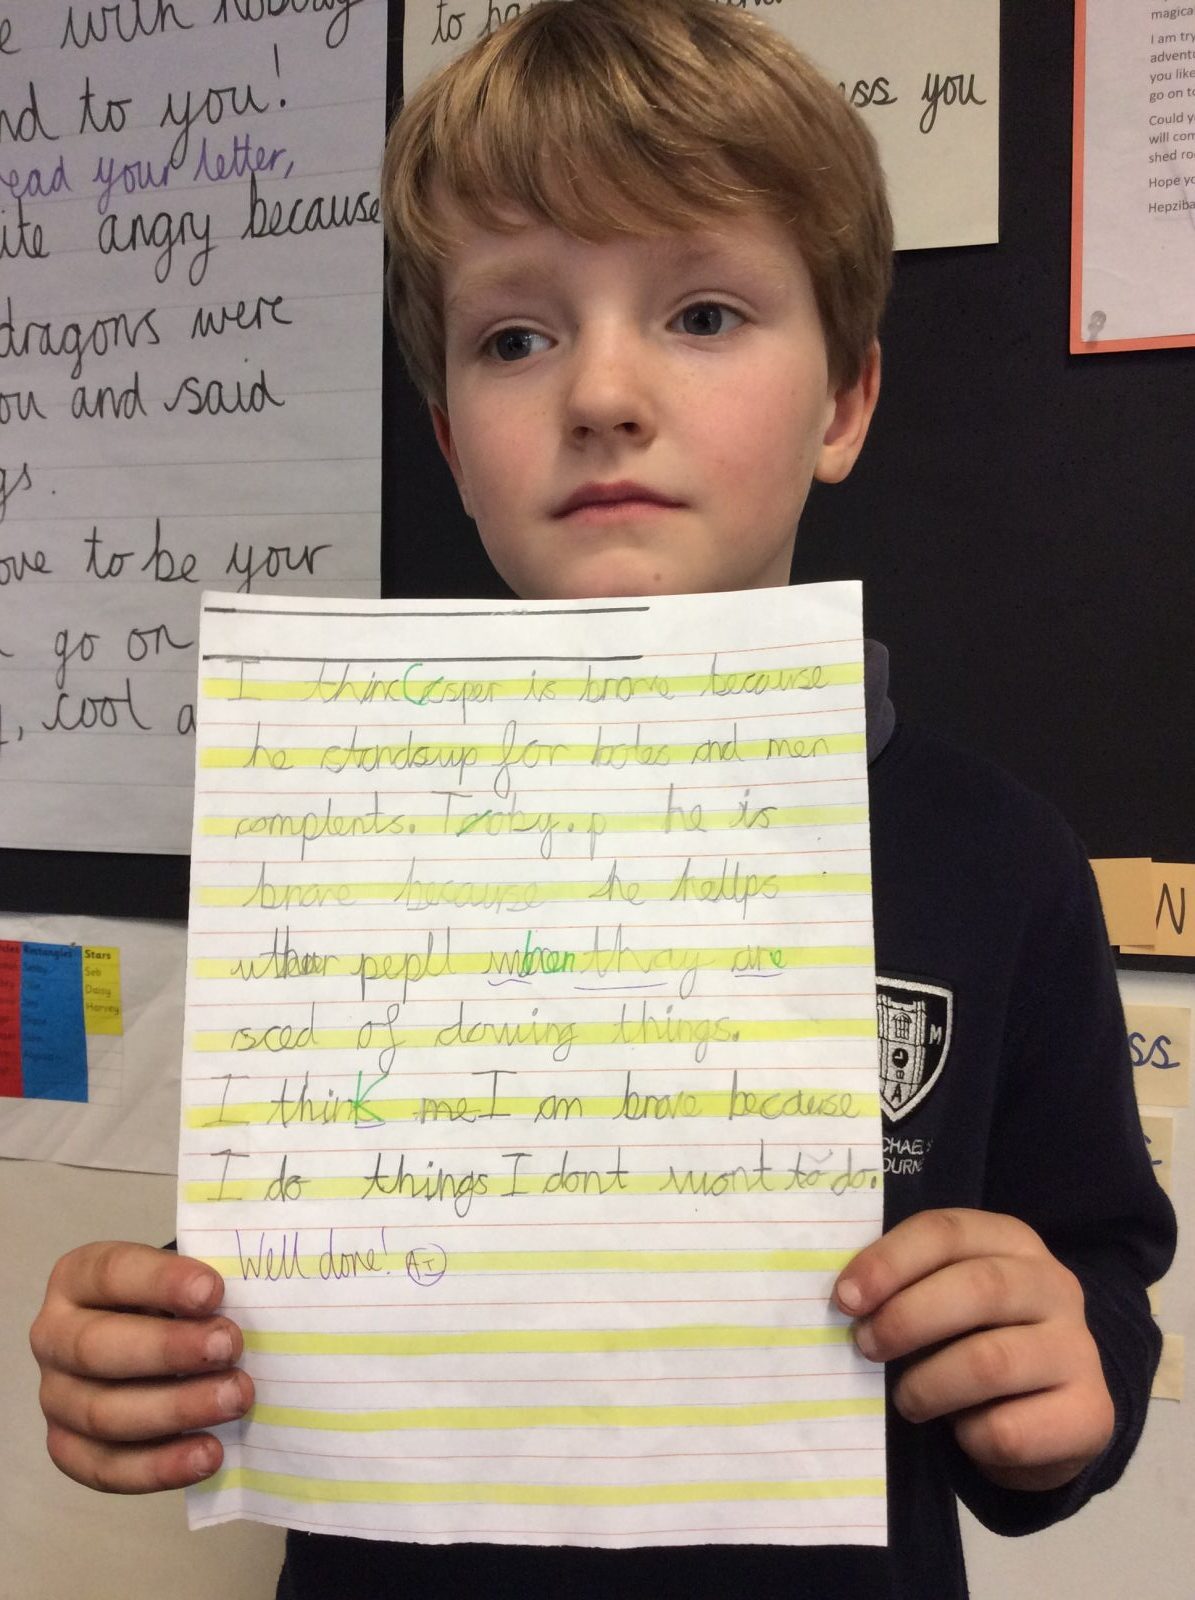 e with nobody
nd to you!
ead your letter,
ite angry because
dragons were
ou and said
gs.
ove to be your
go on
, cool a
to ha
ess you
magica
I am try
advent
you like
go on to
Could y
will com
shed ro
Hope yo
Hepziba
I thinc Casper is brave because
he standsup for botes and men
complents. Tooby.p he is
brave because he hellps
uther pepll when thay are
sced of dowing things.
I think me I am brave because
I do things I dont wont to do.
Well done! AI
Rectangles
Stars
Seb
Daisy
Harvey
N
ss
M
A
CHAEL'S
OURN